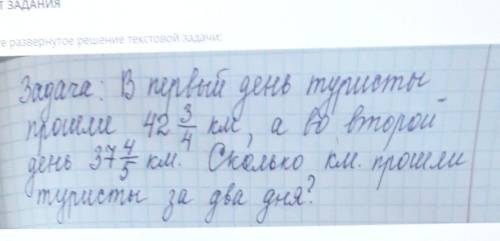 ЗАДАНИЯ
развернутое решение текстовой задачи:
Задача: В первый день туристы
прошли 42 3/4 км, а во второй
день 37 4/5 км. Сколько км. прошли
туристы за два дня?